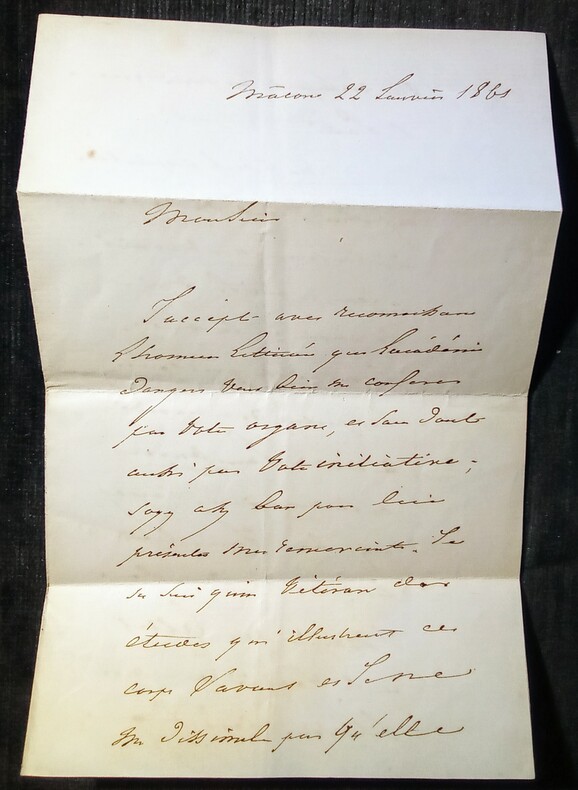 Mâcon 22 Janvier 1861
Monsieur
J'accepte avec reconnaissance
l'honneur littéraire que l'académie
d'angers veut bien me conférer
par votre organe, et sans doute
aussi par votre initiative ;
soyez assez bon pour lui
présenter mes remerciements. Je
ne suis qu'un vétéran des
études qui illustrent ce
corps savant et je ne
me dissimule pas qu'elle